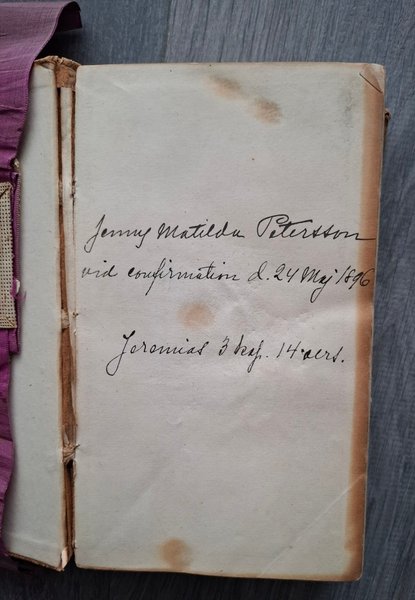 Jenny Matilda Petersson
vid confirmation d. 24 Maj 1896
Jeremias 3 kap. 14 vers.